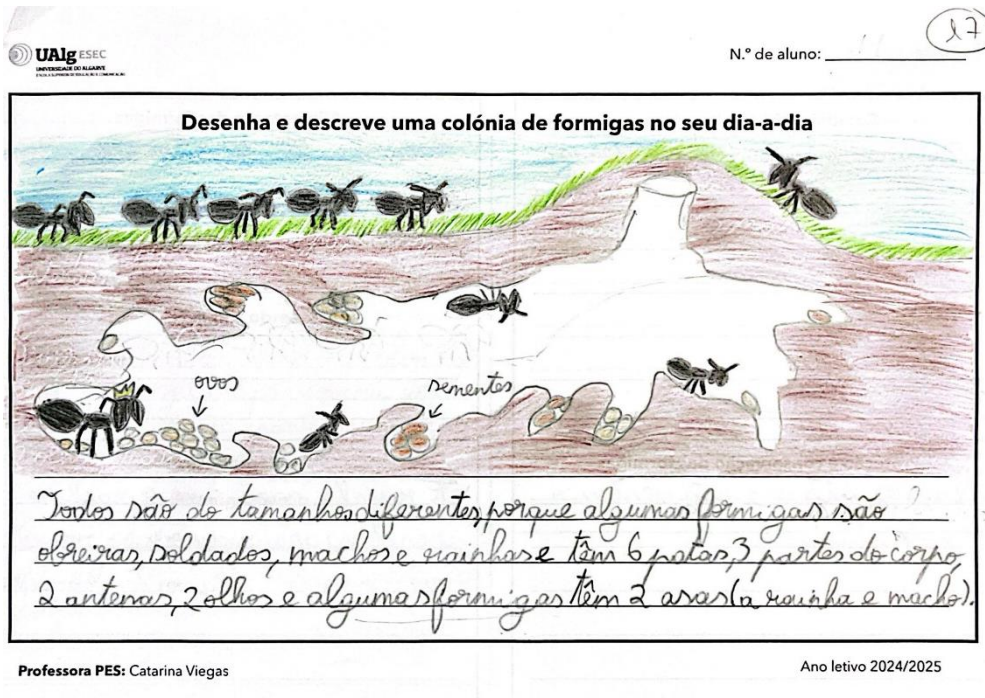 17
UAlg ESEC
UNIVERSIDADE DO ALGARVE
ESCOLA SUPERIOR DE EDUCAÇÃO E COMUNICAÇÃO
N.º de aluno:
Desenha e descreve uma colónia de formigas no seu dia-a-dia
ovos
sementes
Todos são do tamanhos diferentes, porque algumas formigas são
obreiras, soldados, machos e rainhas e têm 6 patas, 3 partes do corpo,
2 antenas, 2 olhos e algumas formigas têm 2 asas (a rainha e macho).
Professora PES: Catarina Viegas
Ano letivo 2024/2025